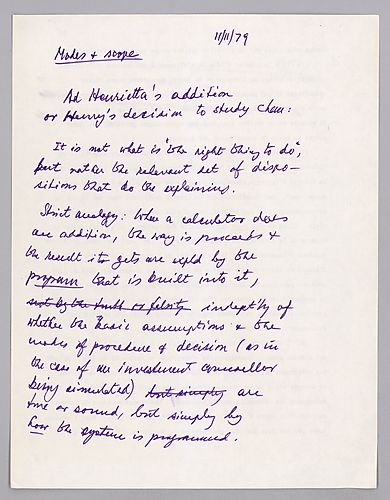 11/11/79
Modes + scope
Ad Henrietta's addition
or Henry's decision to study chem:
It is not what is "the right thing to do",
but rather the relevant set of dispo-
sitions that do the explaining.
Strict analogy: When a calculator does
an addition, the way it proceeds +
the result it gets are expld by the
program that is built into it,
not by the truth or falsity indeptly of
whether the basic assumptions + the
modes of procedure + decision (as in
the case of an investment counsellor
being simulated) but simply are
true or sound, but simply by
how the system is programmed.